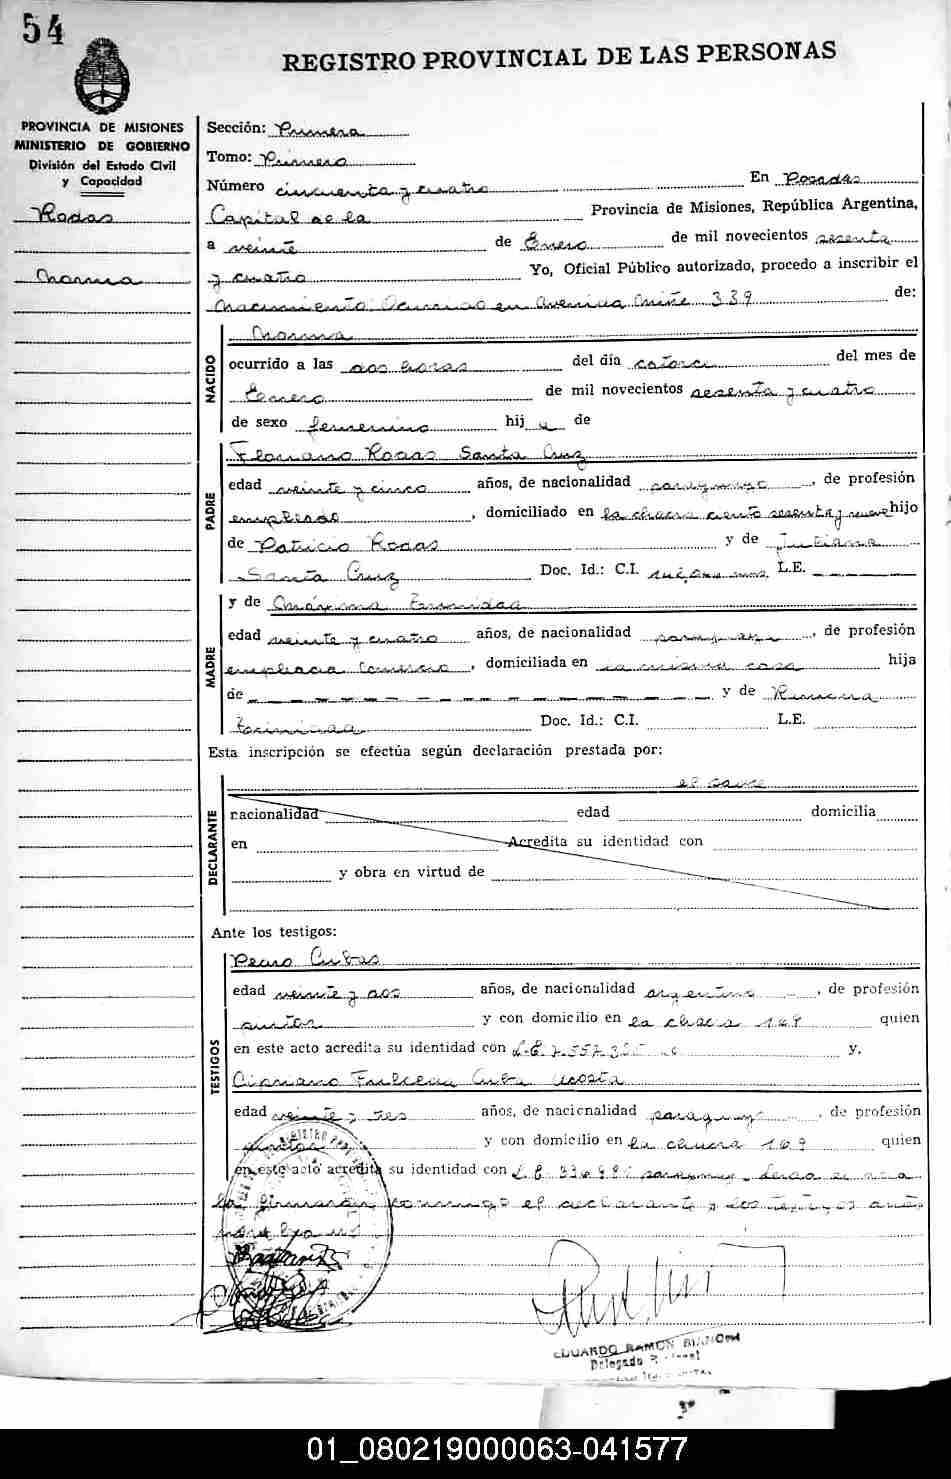 54
REGISTRO PROVINCIAL DE LAS PERSONAS
PROVINCIA DE MISIONES
MINISTERIO DE GOBIERNO
División del Estado Civil
y Capacidad
Rodas
Norma
Sección: Primera
Tomo: Primero
Número cincuenta y cuatro En Posadas
Capital de la Provincia de Misiones, República Argentina,
a veinte de Enero de mil novecientos sesenta
y cuatro Yo, Oficial Público autorizado, procedo a inscribir el
nacimiento Ocurrido en Avenida 339 de:
NACIDO
Norma
ocurrido a las dos horas del día catorce del mes de
Enero de mil novecientos sesenta y cuatro
de sexo femenino hija de
PADRE
Floriano Rodas Santa Cruz
edad veinte y cinco años, de nacionalidad paraguayo, de profesión
empleado, domiciliado en la chacra ciento sesenta y nueve hijo
de Patricio Rodas y de Juliana
Santa Cruz Doc. Id.: C.I. L.E.
MADRE
y de Máxima Trinidad
edad veinte y cuatro años, de nacionalidad paraguaya, de profesión
empleada Comercio, domiciliada en la misma casa hija
de y de Ramona
Trinidad Doc. Id.: C.I. L.E.
Esta inscripción se efectúa según declaración prestada por:
el padre
DECLARANTE
nacionalidad edad domicilia
en Acredita su identidad con
y obra en virtud de
Ante los testigos:
TESTIGOS
Pedro Cubas
edad veinte y dos años, de nacionalidad argentino, de profesión
pintor y con domicilio en la chacra 169 quien
en este acto acredita su identidad con L.E. y,
Cipriano Cuba Acosta
edad veinte y tres años, de nacionalidad paraguayo, de profesión
pintor y con domicilio en la chacra 169 quien
en este acto acredita su identidad con
la firmaron conmigo el declarante y los testigos
EDUARDO RAMON BIANCHI
Delegado
01_080219000063-041577